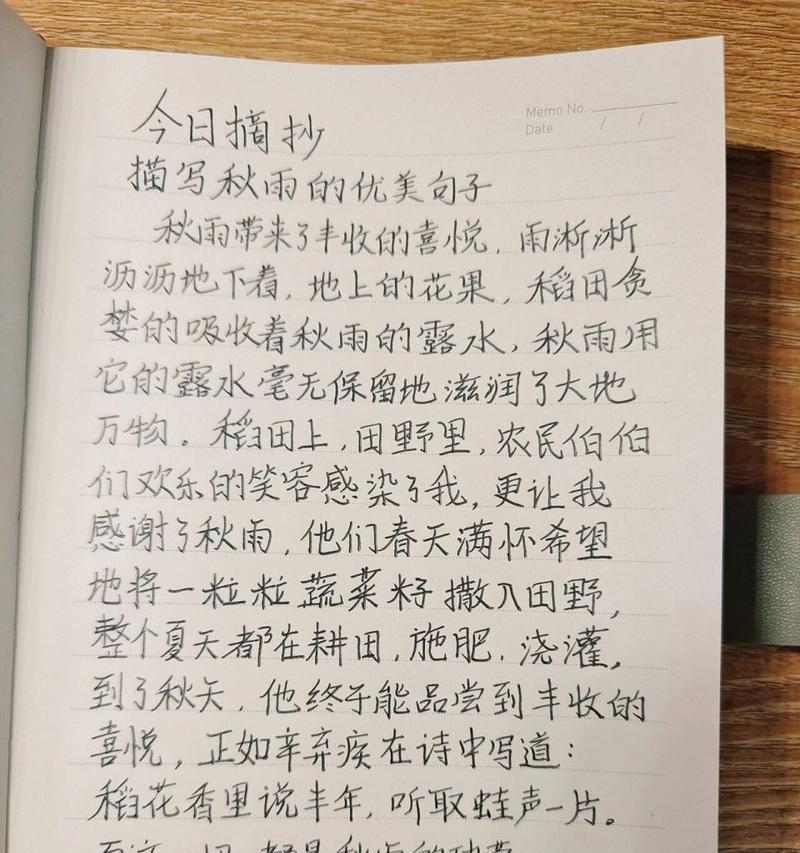 Memo No.
Date / /
今日摘抄
描写秋雨的优美句子
秋雨带来了丰收的喜悦，雨淅淅
沥沥地下着，地上的花果，稻田贪
婪的吸收着秋雨的露水，秋雨用
它的露水毫无保留地滋润了大地
万物。稻田上，田野里，农民伯伯
们欢乐的笑容感染了我，更让我
感谢了秋雨，他们春天满怀希望
地将一粒粒蔬菜籽撒入田野，
整个夏天都在耕田，施肥，浇灌，
到了秋天，他终于能品尝到丰收的
喜悦，正如辛弃疾在诗中写道：
稻花香里说丰年，听取蛙声一片。